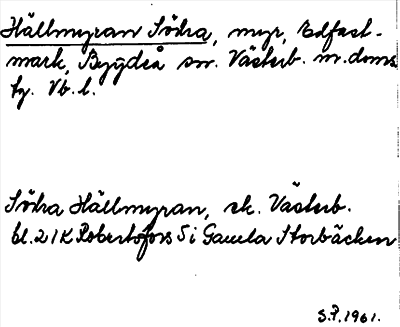 Hällmyran Södra, myr, Edfast-
mark, Bygdeå sn. Västerb. n. doms.
fg. Vb. l.
Södra Hällmyran, ek. Västerb.
bl. 21 K Robertsfors S i Gamla Storbäcken
S.P. 1961.